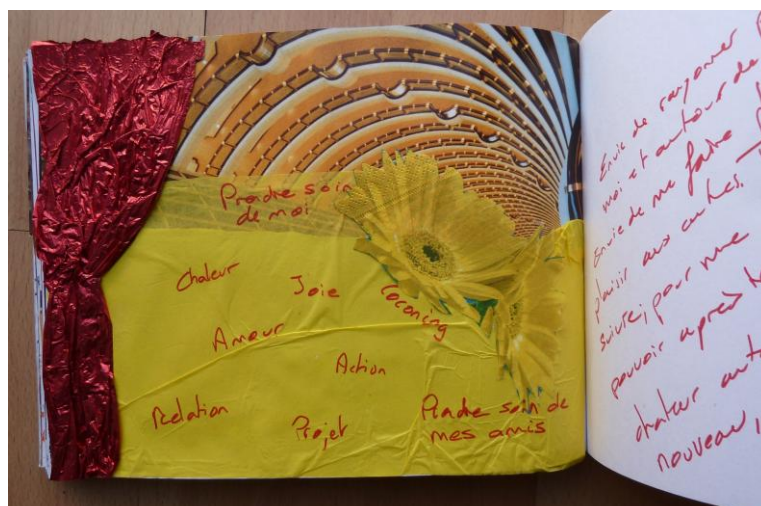 Prendre soin
de moi
Chaleur
Joie
Coconing
Amour
Action
Relation
Projet
Prendre soin de
mes amis
Envie de rayonner
moi et autour de
Envie de me faire
plaisir aux autres.
suivre, pour me
pouvoir après
chaleur
nouveau,